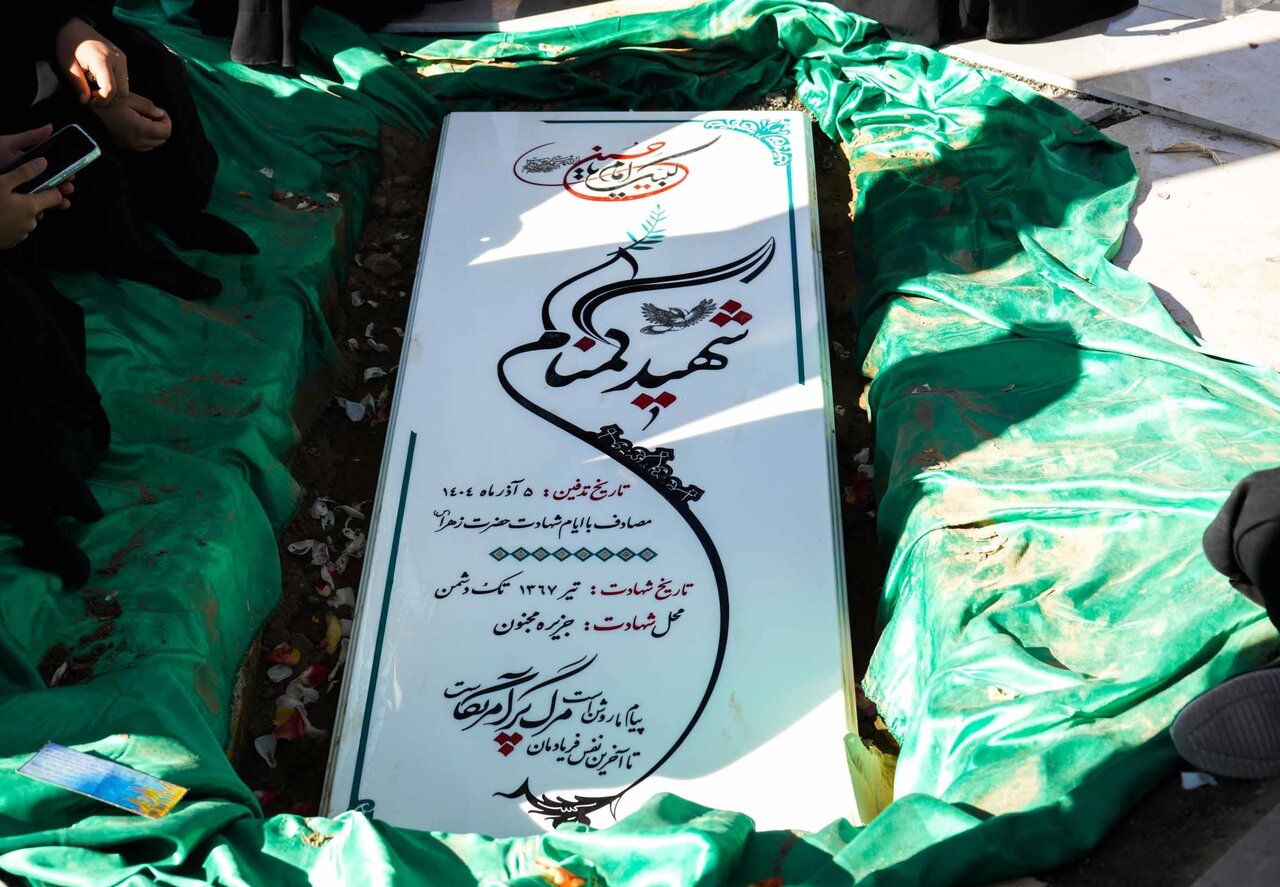 لبیک یا امام حسین
شهید گمنام
تاریخ تدفین: ۵ آذر ماه ۱۴۰۴
مصادف با ایام شهادت حضرت زهرا
تاریخ شهادت: تیر ۱۳۶۷ تک دشمن
محل شهادت: جزیره مجنون
پیام ما روشن است مرگ بر آمریکاست
تا آخرین نفس فریادمان